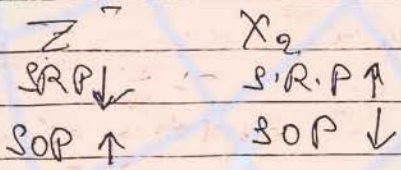 Z⁻ X₂
SRP↓ S.R.P↑
SOP ↑ SOP ↓